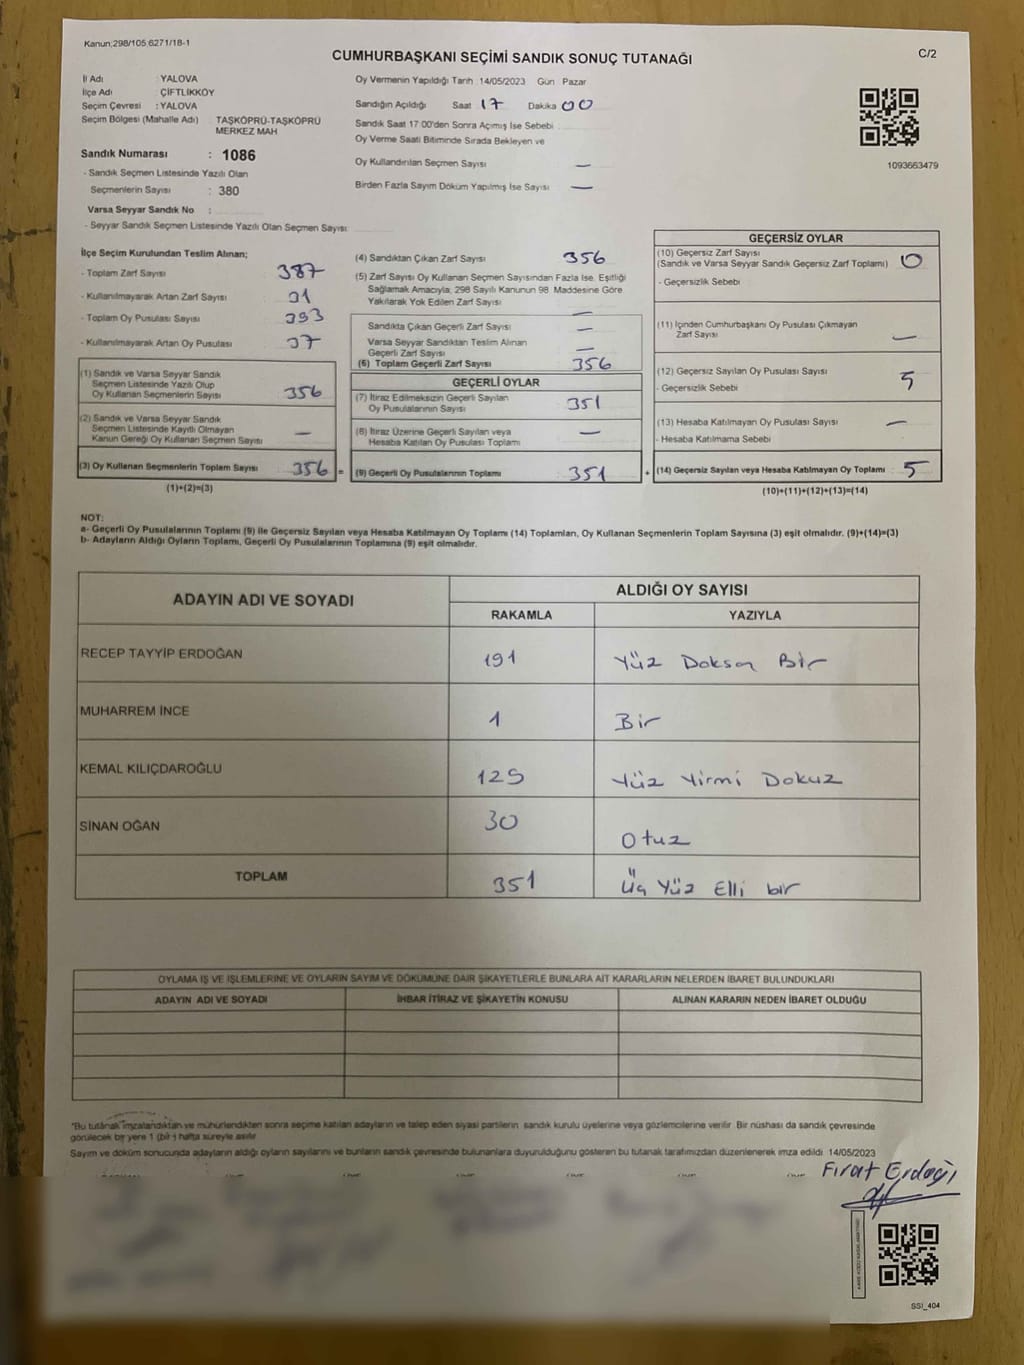 Kanun;298/105,6271/18-1
CUMHURBAŞKANI SEÇİMİ SANDIK SONUÇ TUTANAĞI
C/2
İl Adı : YALOVA
İlçe Adı : ÇİFTLİKKÖY
Seçim Çevresi : YALOVA
Seçim Bölgesi (Mahalle Adı) TAŞKÖPRÜ-TAŞKÖPRÜ
MERKEZ MAH
Sandık Numarası : 1086
- Sandık Seçmen Listesinde Yazılı Olan
Seçmenlerin Sayısı : 380
Varsa Seyyar Sandık No :
- Seyyar Sandık Seçmen Listesinde Yazılı Olan Seçmen Sayısı:
Oy Vermenin Yapıldığı Tarih :14/05/2023 Gün Pazar
Sandığın Açıldığı Saat 17 Dakika 00
Sandık Saat 17:00'den Sonra Açımış İse Sebebi
Oy Verme Saati Bitiminde Sırada Bekleyen ve
Oy Kullandırılan Seçmen Sayısı —
Birden Fazla Sayım Döküm Yapılmış İse Sayısı —
1093663479
İlçe Seçim Kurulundan Teslim Alınan;
- Toplam Zarf Sayısı 387
- Kullanılmayarak Artan Zarf Sayısı 31
- Toplam Oy Pusulası Sayısı 393
- Kullanılmayarak Artan Oy Pusulası 37
(1) Sandık ve Varsa Seyyar Sandık
Seçmen Listesinde Yazılı Olup
Oy Kullanan Seçmenlerin Sayısı 356
(2) Sandık ve Varsa Seyyar Sandık
Seçmen Listesinde Kayıtlı Olmayan
Kanun Gereği Oy Kullanan Seçmen Sayısı —
(3) Oy Kullanan Seçmenlerin Toplam Sayısı 356 =
(1)+(2)=(3)
(4) Sandıktan Çıkan Zarf Sayısı 356
(5) Zarf Sayısı Oy Kullanan Seçmen Sayısından Fazla İse, Eşitliği
Sağlamak Amacıyla, 298 Sayılı Kanunun 98. Maddesine Göre
Yakılarak Yok Edilen Zarf Sayısı —
Sandıkta Çıkan Geçerli Zarf Sayısı —
Varsa Seyyar Sandıktan Teslim Alınan
Geçerli Zarf Sayısı —
(6) Toplam Geçerli Zarf Sayısı 356
GEÇERLİ OYLAR
(7) İtiraz Edilmeksizin Geçerli Sayılan
Oy Pusulalarının Sayısı 351
(8) İtiraz Üzerine Geçerli Sayılan veya
Hesaba Katılan Oy Pusulası Toplamı —
(9) Geçerli Oy Pusulalarının Toplamı 351 +
GEÇERSİZ OYLAR
(10) Geçersiz Zarf Sayısı
(Sandık ve Varsa Seyyar Sandık Geçersiz Zarf Toplamı) 0
- Geçersizlik Sebebi
(11) İçinden Cumhurbaşkanı Oy Pusulası Çıkmayan
Zarf Sayısı —
(12) Geçersiz Sayılan Oy Pusulası Sayısı 5
- Geçersizlik Sebebi
(13) Hesaba Katılmayan Oy Pusulası Sayısı —
- Hesaba Katılmama Sebebi
(14) Geçersiz Sayılan veya Hesaba Katılmayan Oy Toplamı 5
(10)+(11)+(12)+(13)=(14)
NOT:
a- Geçerli Oy Pusulalarının Toplamı (9) ile Geçersiz Sayılan veya Hesaba Katılmayan Oy Toplamı (14) Toplamları, Oy Kullanan Seçmenlerin Toplam Sayısına (3) eşit olmalıdır. (9)+(14)=(3)
b- Adayların Aldığı Oyların Toplamı, Geçerli Oy Pusulalarının Toplamına (9) eşit olmalıdır.
ADAYIN ADI VE SOYADI ALDIĞI OY SAYISI
RAKAMLA YAZIYLA
RECEP TAYYİP ERDOĞAN 191 Yüz Doksan Bir
MUHARREM İNCE 1 Bir
KEMAL KILIÇDAROĞLU 129 Yüz Yirmi Dokuz
SİNAN OĞAN 30 Otuz
TOPLAM 351 Üç Yüz Elli bir
OYLAMA İŞ VE İŞLEMLERİNE VE OYLARIN SAYIM VE DÖKÜMÜNE DAİR ŞİKAYETLERLE BUNLARA AİT KARARLARIN NELERDEN İBARET BULUNDUKLARI
ADAYIN ADI VE SOYADI İHBAR İTİRAZ VE ŞİKAYETİN KONUSU ALINAN KARARIN NEDEN İBARET OLDUĞU
*Bu tutanak imzalandıktan ve mühürlendikten sonra seçime katılan adayların ve talep eden siyasi partilerin sandık kurulu üyelerine veya gözlemcilerine verilir. Bir nüshası da sandık çevresinde
görülecek bir yere 1 (bir ) hafta süreyle asılır.
Sayım ve döküm sonucunda adayların aldığı oyların sayılarını ve bunların sandık çevresinde bulunanlara duyurulduğunu gösteren bu tutanak tarafımızdan düzenlenerek imza edildi. 14/05/2023
Fırat Erdağı
SSİ_404